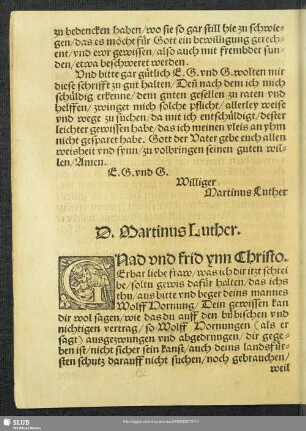 zu bedencken haben/wo sie so gar still hie zu schwie-
gen/das es möcht für Gott ein bewilligung gerech-
ent/vnd ewr gewissen/also auch mit frembder sun-
den/etwa beschweret werden.
Vnd bitte gar gütlich E. G. vnd G. wolten mir
diese schrifft zu gut halten/Den nach dem ich mich
schüldig erkenne/dem guten gesellen zu raten vnd
helffen/zwinget mich solche pflicht/allerley weise
vnd wege zu suchen/da mit ich entschüldigt/dester
leichter gewissen habe/das ich meinen vleis an yhm
nicht gesparet habe. Gott der Vater gebe euch allen
weisheit vnd synn/zu volbringen seinen guten wil-
len/Amen.
E. G. vnd G.
Williger
Martinus Luther
D. Martinus Luther.
GNad vnd frid ynn Christo.
Erbar liebe fraw/was ich dir itzt schrei
be/soltu gewis dafür halten/das ichs
thu/aus bitte vnd beger deins mannes
Wolff Hornung/Dein gewissen kan
dir wol sagen/wie das du auff den bübischen vnd
nichtigen vertrag/so Wolff Hornungen (als er
sagt) ausgezwungen vnd abgedrungen/dir gege-
ben ist/nicht sicher sein kanst/auch deins landsfür-
sten schutz darauff nicht suchen/noch gebrauchen/
weil
SLUB